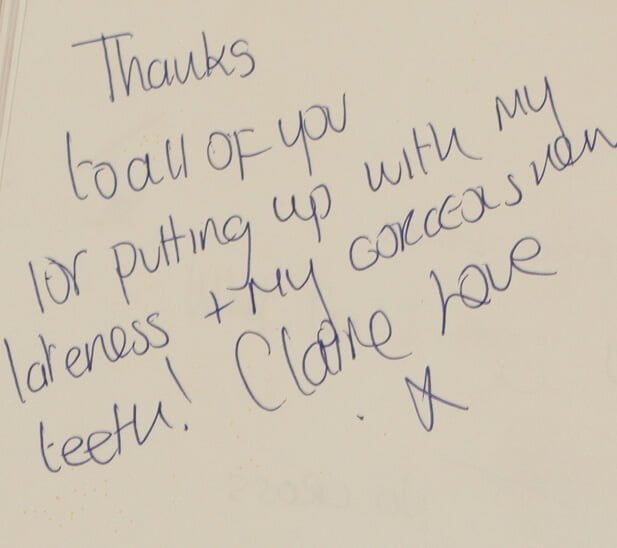 Thanks
to all OF you
for putting up with MY
lateness + MY GORGEOUS new
teeth! Claire Love
X